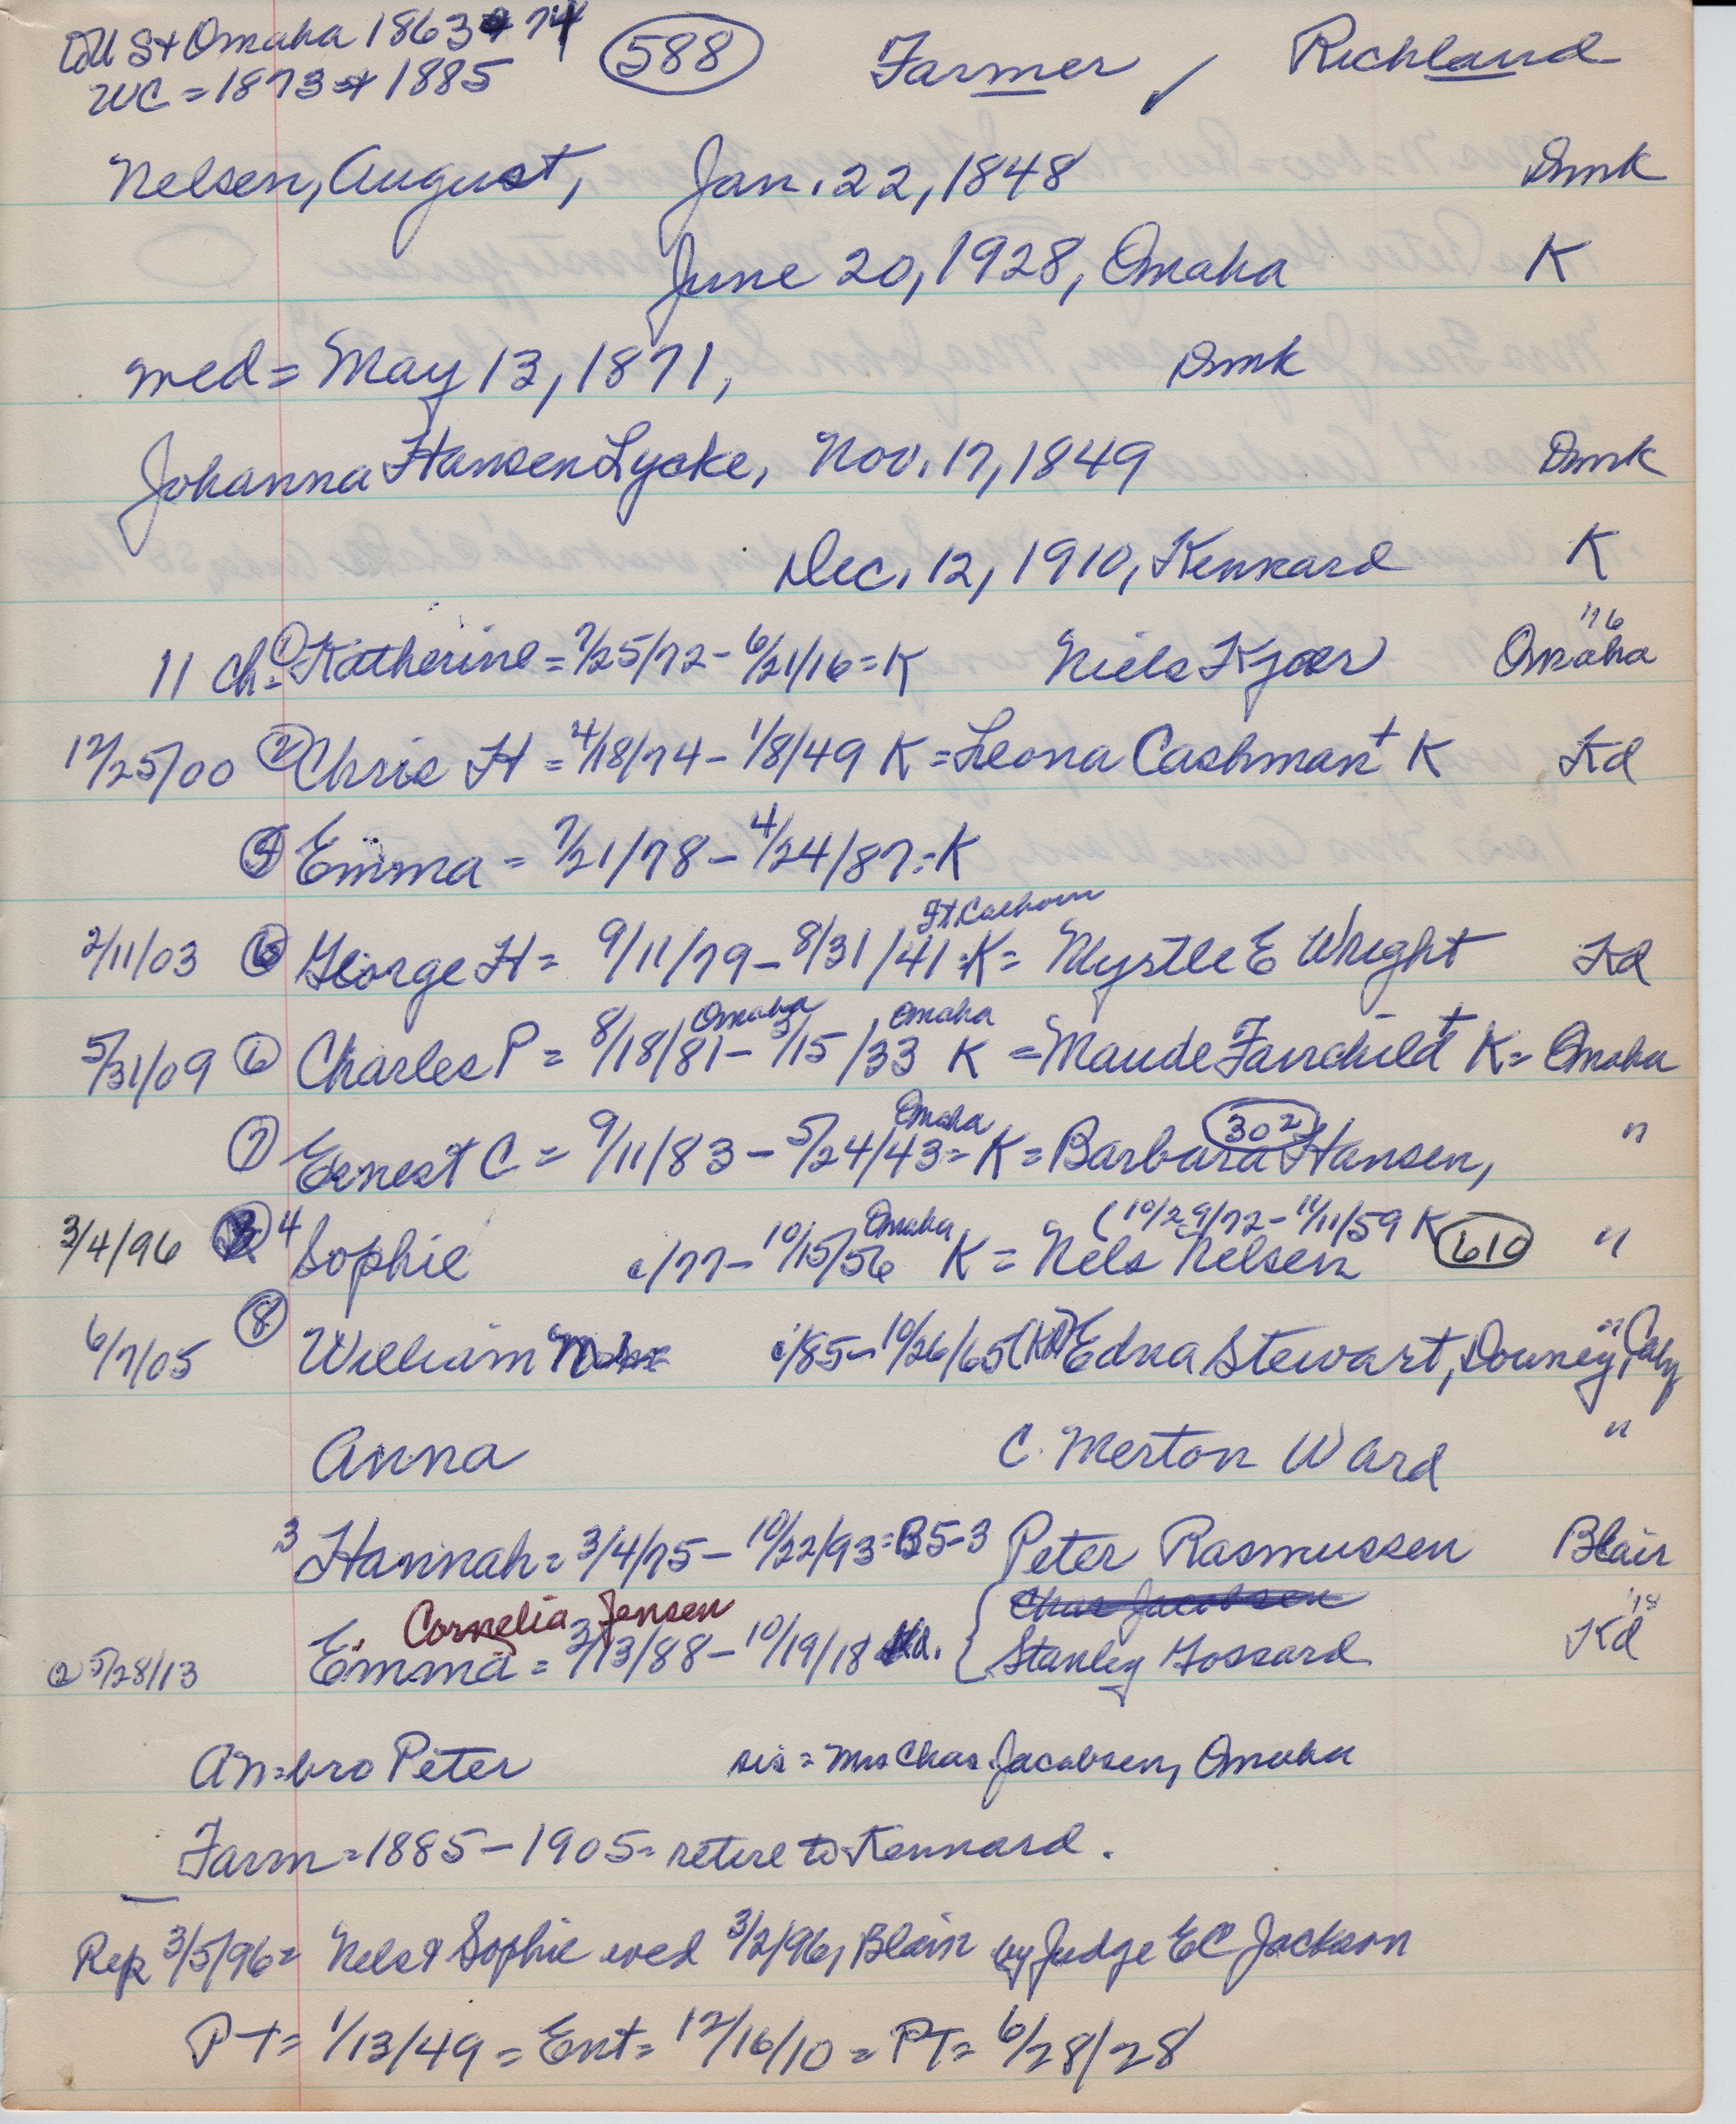 US + Omaha 1863 + 74 (588) Farmer / Richland
WC = 1873 + 1885
Nelsen, August, Jan. 22, 1848 Dmk
June 20, 1928, Omaha K
med = May 13, 1871, Dmk
Johanna Hansen Lycke, Nov. 17, 1849 Dmk
Dec. 12, 1910, Kennard K
'16
11 ch = ① Katherine = 7/25/72 - 6/21/16 = K Niels Kjaer Omaha
12/25/00 ② Chris H = 4/18/74 - 1/8/49 K = Leona Cashman + K Kd
Emma = 7/21/78 - 4/24/87 = K
Ft Calhoun
2/11/03 George H = 9/11/79 - 8/31/41 = K = Myrtle E Wright Kd
Omaha Omaha
5/31/09 ⑥ Charles P = 8/18/81 - 3/15/33 K = Maude Fairchild + K = Omaha
Omaha (302)
⑦ Ernest C = 9/11/83 - 5/24/43 = K = Barbara Hansen, "
Omaha (10/29/72 - 11/11/59 K
3/4/96 4 Sophie c/77 - 10/15/56 K = Nels Nelsen (610) "
6/7/05 ⑧ William c/85 - 10/26/65 (Kd) Edna Stewart, Downey, "
Anna C. Merton Ward "
3 Hannah = 3/4/75 - 10/22/93 = B5-3 Peter Rasmussen Blair
Cornelia Jensen Chas Jacobsen '18
② 5/28/13 Emma = 3/13/88 - 10/19/18 Kd. { Stanley Gossard Kd
AN = bro Peter sis = Mrs Chas. Jacobsen, Omaha
Farm = 1885 - 1905 = retire to Kennard.
Rep 3/5/96 = Nels + Sophie wed 3/2/96, Blair by Judge EC Jackson
PT = 1/13/49 = Ent = 12/16/10 = PT = 6/28/28